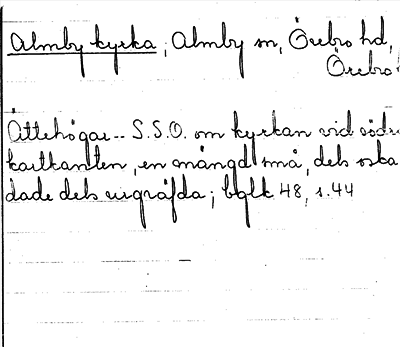 Almby kyrka, Almby sn, Örebro hd,
Örebro
Ättehögar-- S.S.O. om kyrkan vid södr
kartkanten, en mängd små, dels oska
dade dels urgräfda; bglk 48, s. 44